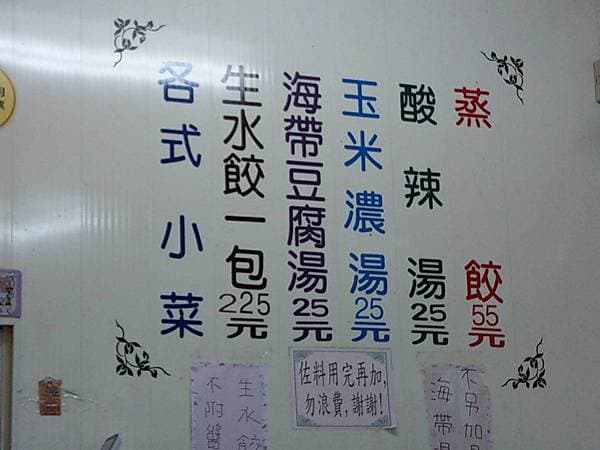 蒸餃55元
酸辣湯25元
玉米濃湯25元
海帶豆腐湯25元
生水餃一包225元
各式小菜
不另加
海帶
佐料用完再加,
勿浪費,謝謝!
生水餃
不附醬